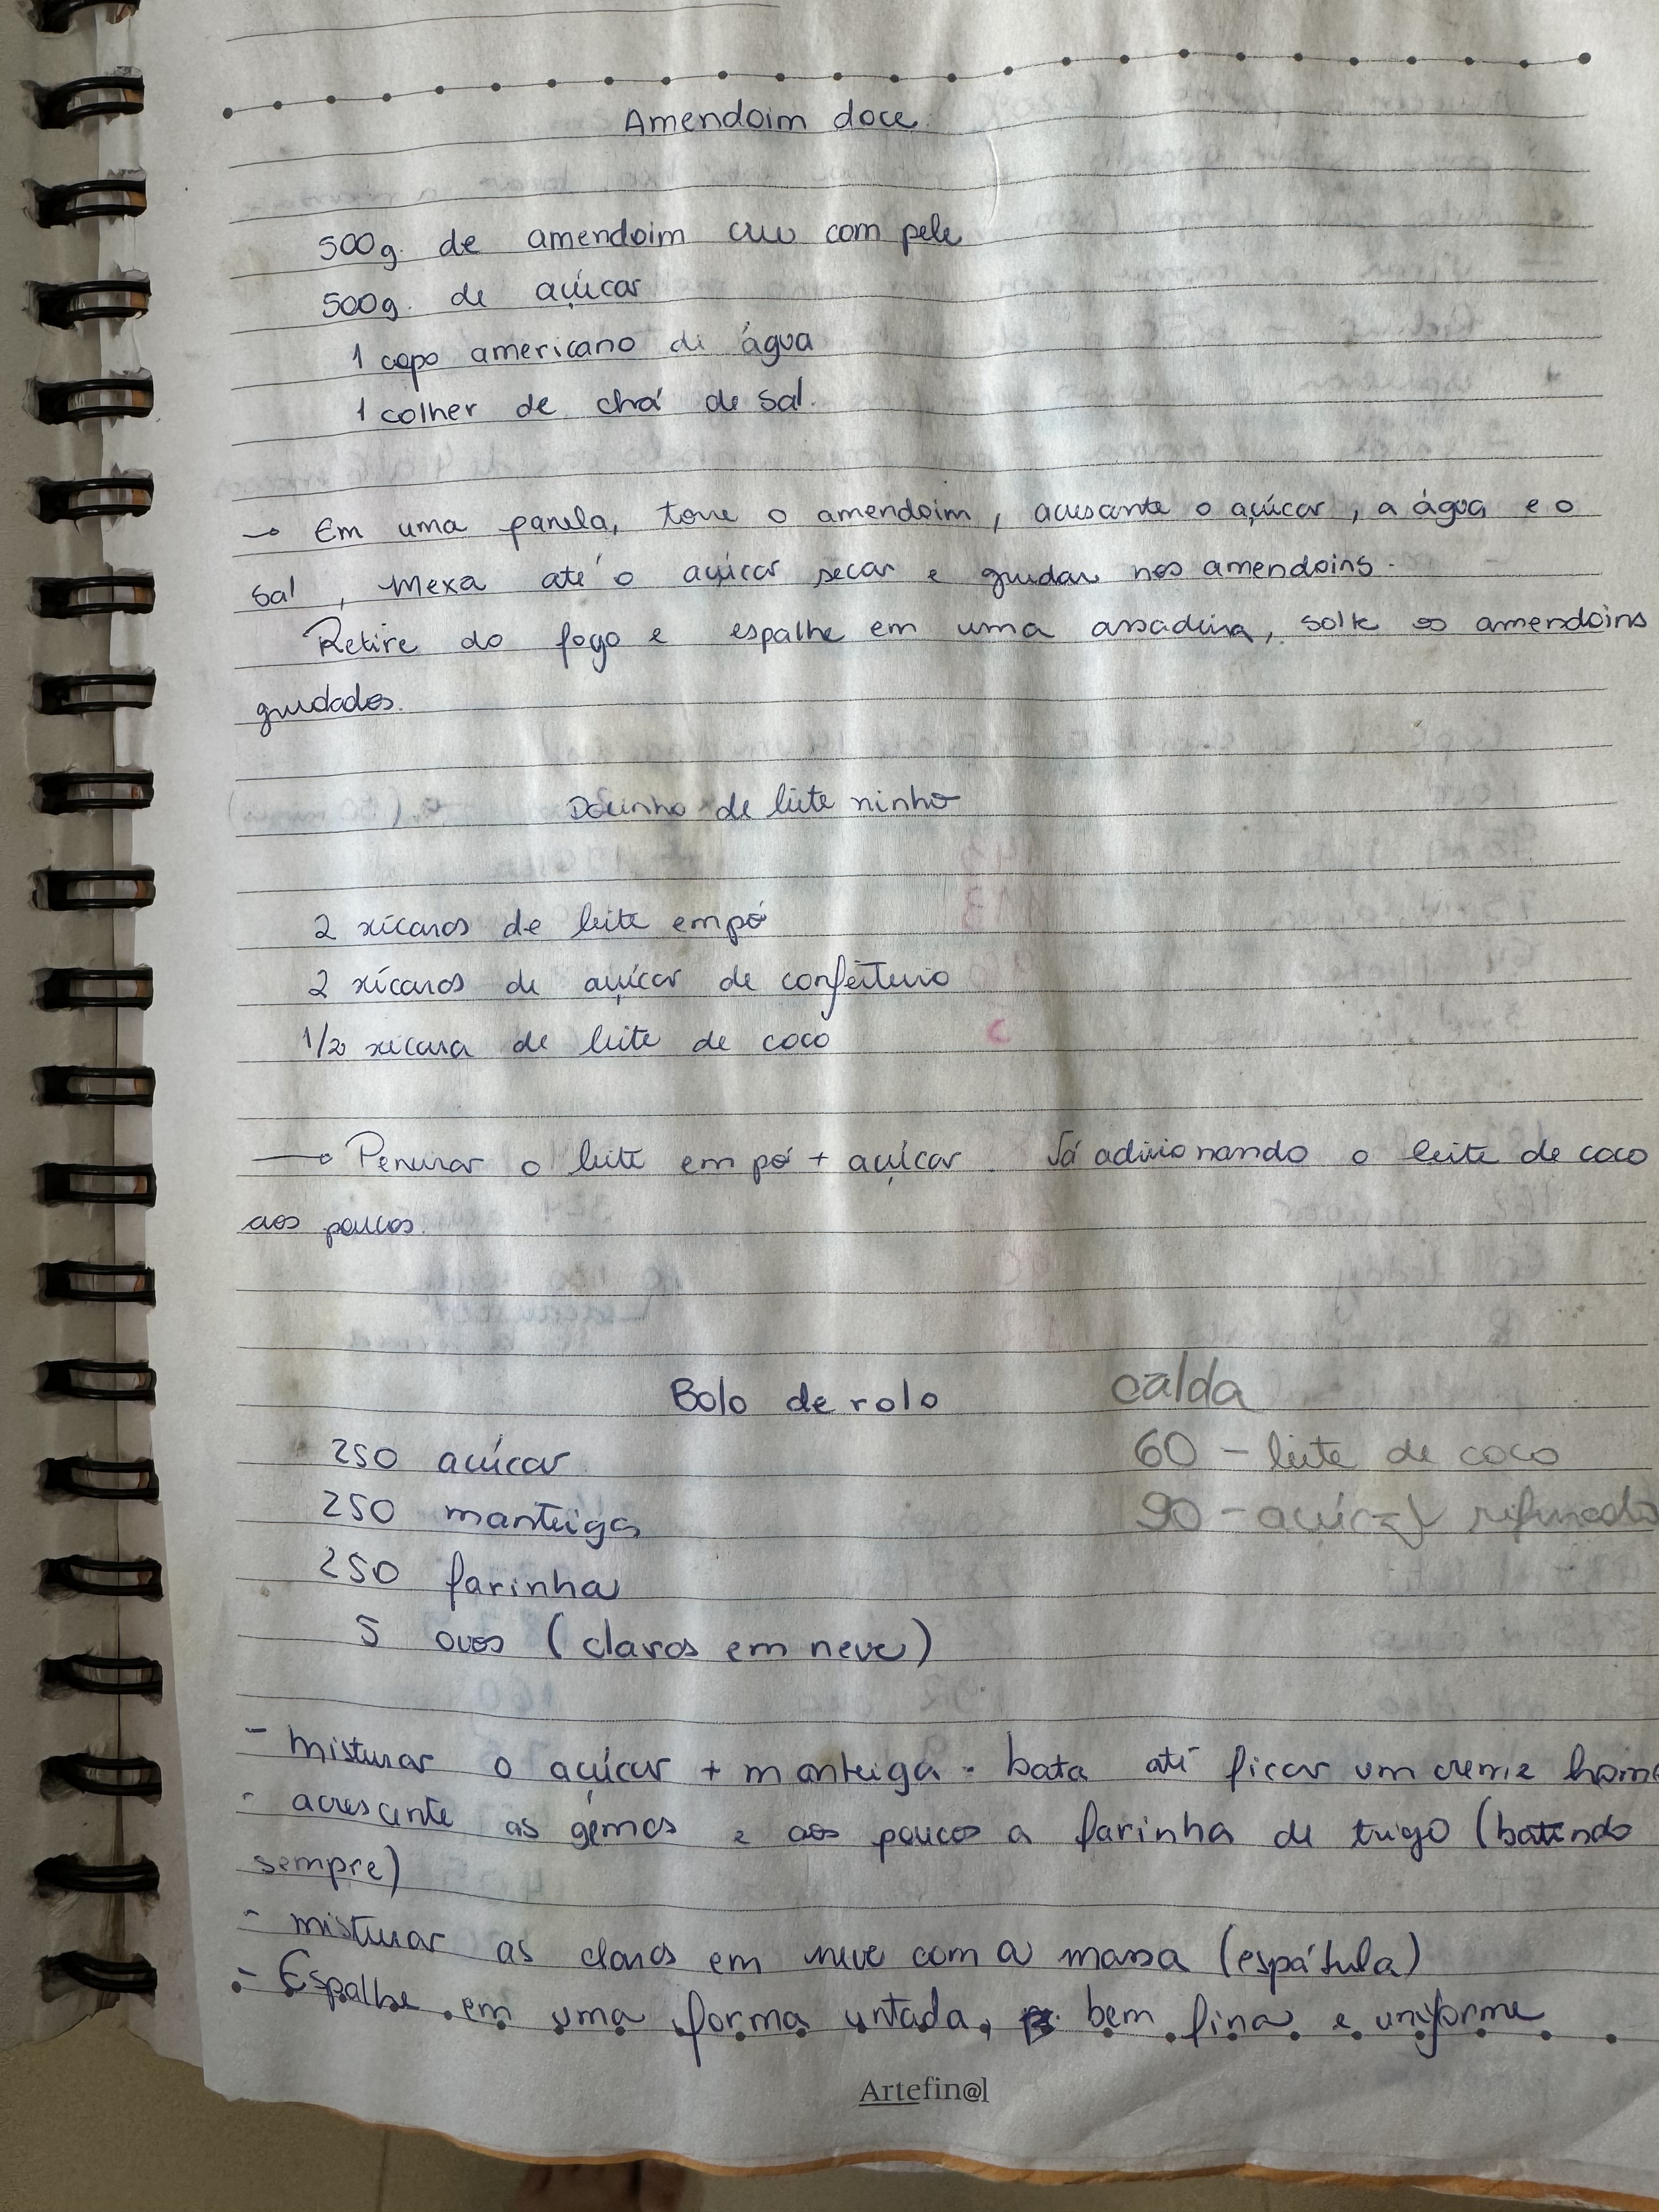 Amendoim doce.
500g. de amendoim cru com pele
500g. de açúcar
1 copo americano de água
1 colher de chá de sal.
→ Em uma panela, torre o amendoim, acrescente o açúcar, a água e o
sal, Mexa até o açúcar secar e grudar nos amendoins.
Retire do fogo e espalhe em uma assadeira, solte os amendoins
grudados.
Docinho de leite ninho
2 xícaras de leite em pó
2 xícaras de açúcar de confeiteiro
1/2 xícara de leite de coco
→ Peneirar o leite em pó + açúcar. Vá adicionando o leite de coco
aos poucos.
Bolo de rolo
calda
250 açúcar
60 - leite de coco
250 manteiga
90 - açúcar refinado
250 farinha
5 ovos (claras em neve)
- misturar o açúcar + manteiga. bata até ficar um creme homo
- acrescente as gemas e aos poucos a farinha de trigo (batendo
sempre)
- misturar as claras em neve com a massa (espátula)
- Espalhe em uma forma untada, bem fina e uniforme
Artefin@l